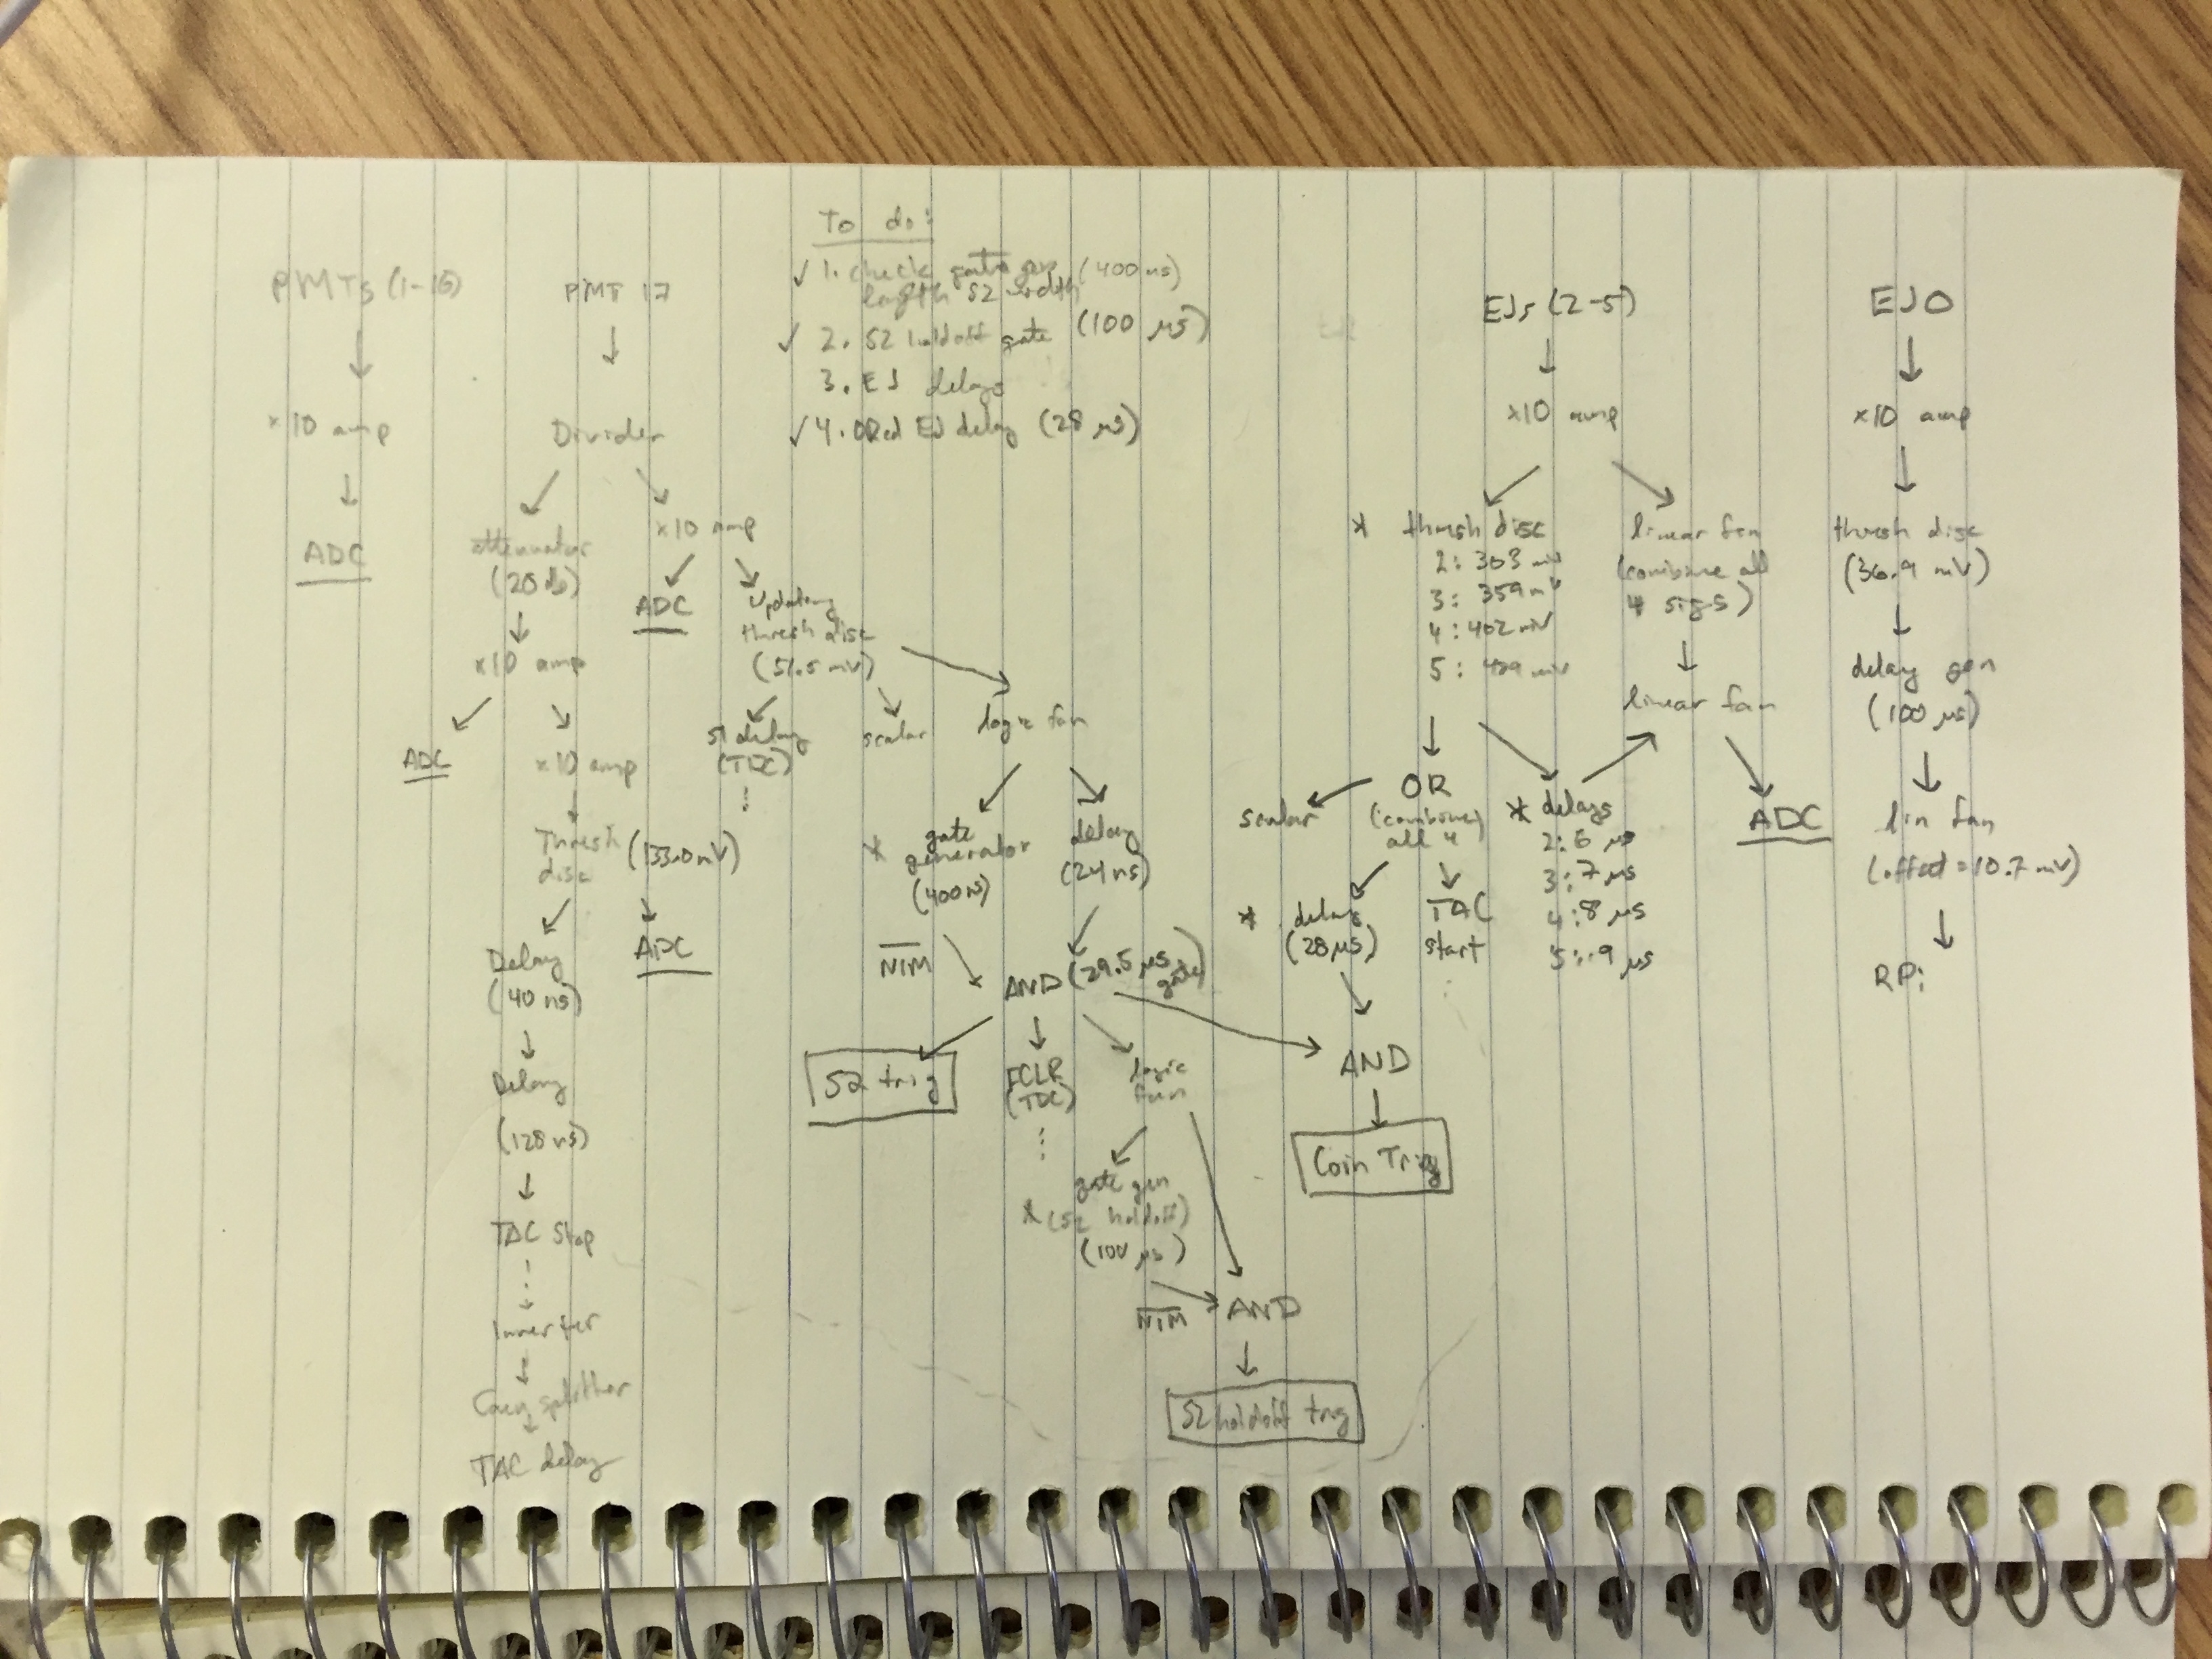 To do:
✓ 1. check gate gen (400 ns)
length S2 width
✓ 2. S2 holdoff gate (100 μs)
3. EJ delays
✓ 4. ORed EJ delay (28 μs)
PMTs (1-16)
×10 amp
ADC
PMT 17
Divider
attenuator
(20 db)
×10 amp
ADC
×10 amp
Thresh
disc
(133.0 mV)
ADC
Delay
(40 ns)
Delay
(128 ns)
TAC Stop
Inverter
splitter
TAC delay
×10 amp
ADC
Updating
thresh disc
(51.5 mV)
S1 delay
(TDC)
scalar
logic fan
* gate
generator
(400 ns)
delay
(24 ns)
NIM
AND (29.5 μs
gate)
S2 trig
FCLR
(TDC)
logic
fan
gate gen
* (S2 holdoff)
(100 μs)
NIM
AND
S2 holdoff trig
EJs (2-5)
×10 amp
* thresh disc
2: 303 mV
3: 359 mV
4: 402 mV
5: mV
linear fan
(combine all
4 sigs)
linear fan
ADC
scalar
OR
(combine)
all 4
* delays
2: 6 μs
3: 7 μs
4: 8 μs
5: 9 μs
* delay
(28 μs)
TAC
start
AND
Coin Trig
EJ0
×10 amp
thresh disc
(36.9 mV)
delay gen
(100 μs)
lin fan
(offset = 10.7 mV)
RP: